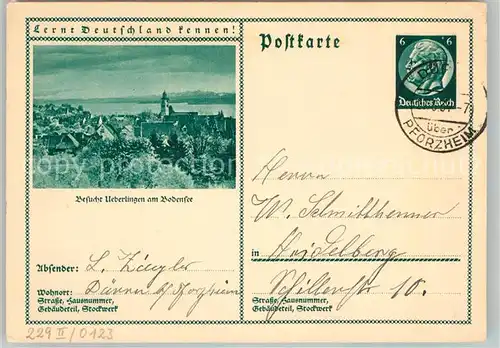 Lernt Deutschland kennen!
Besucht Ueberlingen am Bodensee
Absender: L. Ziegler
Wohnort: Dürrn b/Pforzheim
Straße, Hausnummer,
Gebäudeteil, Stockwerk
Postkarte
6 6
Deutsches Reich
über
PFORZHEIM
Herrn
W. Schmitthenner
in Heidelberg
Schillerstr 10.
Straße, Hausnummer,
Gebäudeteil, Stockwerk
229 II / 0123